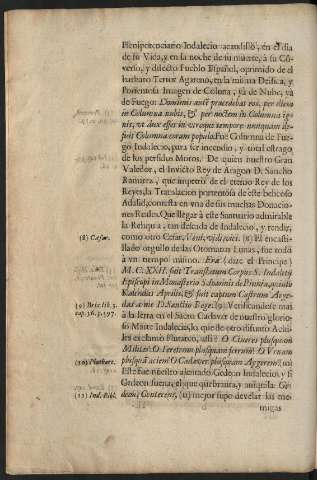 Plenipotenciario Indalecio acaudilló, en el dia
de su Vida, y en la noche de su muerte, à su Cõ-
verso, y dilecto Pueblo Español, oprimido de el
barbaro Terror Agareno, en la misma Deifica, y
Portentosa Imagen de Coluna, yà de Nube, yà
de Fuego: Dominus autẽ praecedebat eos, per diem
in Columna nubis, & per noctem in Columna ig-
nis, ut dux esset in utroque tempore: nunquam de-
fuit Columna coram populo. Fue Coluna de Fue-
go Indalecio, para ser incendio, y total estrago
de los perfidos Moros. De quien nuestro Gran
Valedor, el Invicto Rey de Aragon D. Sancho
Ramirez, que imperio de el eterno Rey de los
Reyes, la Translacion portentosa de este belicoso
Adalid, consta en una de sus muchas Donacio-
nes Reales. Que llegar à este Santuario admirable
la Reliquia, tan deseada de Indalecio, y rendir,
(8) Cæsar.
como otro Cesar, Veni, vidi, vici. (8) El encasti-
llado orgullo de las Otomanas Lunas, fue todo
à un tiempo mismo. Era (dize el Principe)
M.C.XXII. fuit Translatum Corpus S. Indaletij
Episcopi in Monasterio S. Ioannis de Pinna, quinto
Kalendas Aprilis, & fuit captum Castrum Arge-
(9) Briz lib. 3.
cap. 36. p. 597.
das à me D. Sanctio Rege. (9) Verificandose mas
à la letra en el Sacro Cadaver de nuestro glorio-
so Marte Indalecio, lo que de otro difunto Achi-
les exclamò Plutarco, assi: O Cineres plusquam
Milites! O Feretrum plusquam ferrum! O Urnam
(10) Plutharc.
plusquã aciem! O Cadaver plusquam Aggerem! (10)
Este fue nuestro alentado Gedeon Indalecio, y si
Gedeon suena, el que quebranta, y aniquila: Ge-
(11) Ind. Bibl.
deon, Conterens, (11) mejor supo develar las ene-
migas